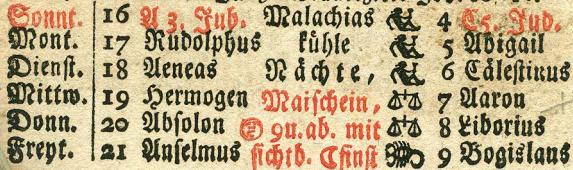 Sonnt. 16 A 3. Jub. Malachias 4 C5. Jud.
Mont. 17 Rudolphus kühle 5 Abigail
Dienst. 18 Aeneas Nächte, 6 Cälestinus
Mittw. 19 Hermogen Maischein, 7 Aaron
Donn. 20 Absolon 9u.ab. mit 8 Liborius
Freyt. 21 Anselmus sichtb. ☾finst 9 Bogislaus